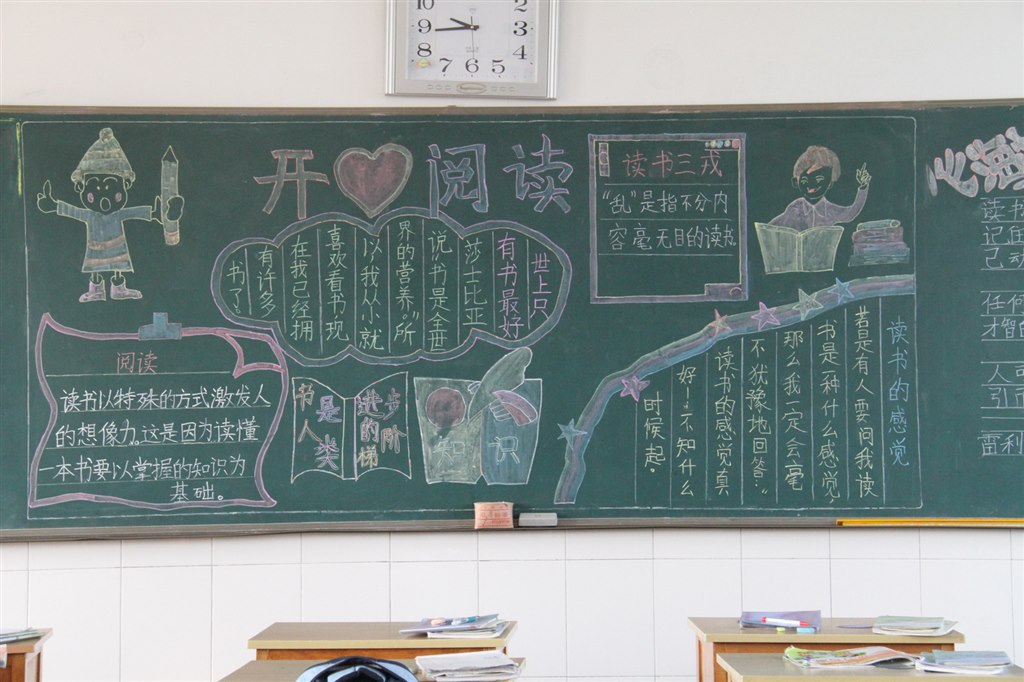 10 2
9 3
8 4
7 6 5
开 阅读
世上只
有书最好
莎士比亚
说书是全世
界的营养。"所
以我从小就
喜欢看书现
在我已经拥
有许多
书了。
读书三戎
"乱"是指不分内
容毫无目的读书。
阅读
读书以特殊的方式激发人
的想像力。这是因为读懂
一本书要以掌握的知识为
基础。
书是
人类
进步
的阶
梯
知识
读书的感觉
若是有人要问我读
书是一种什么感觉,
那么我一定会毫
不犹豫地回答:"
读书的感觉真
好!"不知什么
时候起。
心海
读书
记住
己动
任何
才智
人可
雷利